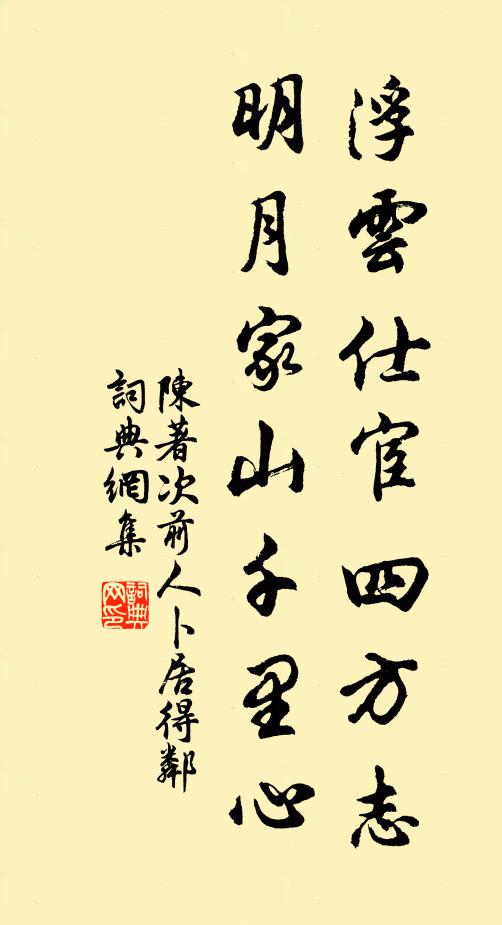 浮雲仕宦四方志
明月家山千里心
陳著次前人卜居得鄰
詞典網集
詞典網印